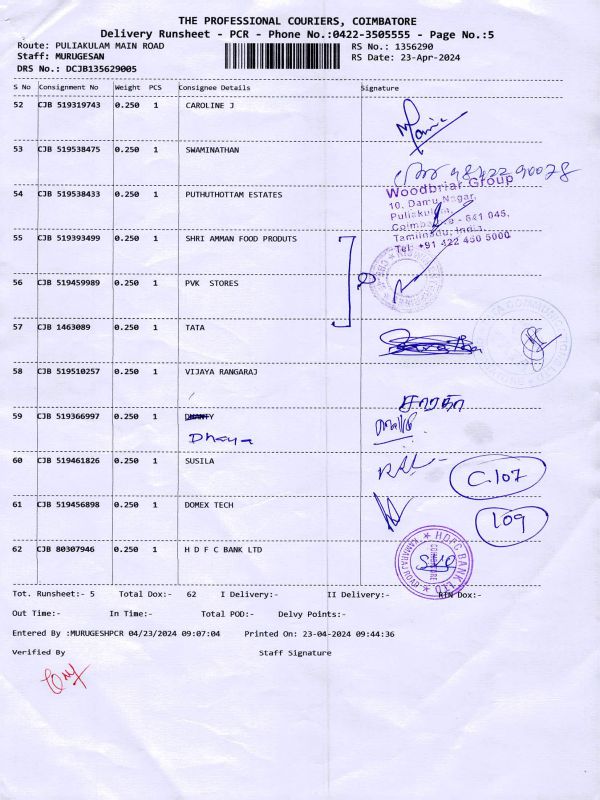 THE PROFESSIONAL COURIERS, COIMBATORE
Delivery Runsheet - PCR - Phone No.:0422-3505555 - Page No.:5
Route: PULIAKULAM MAIN ROAD RS No.: 1356290
Staff: MURUGESAN RS Date: 23-Apr-2024
DRS No.: DCJB135629005
S No Consignment No Weight PCS Consignee Details Signature
52 CJB 519319743 0.250 1 CAROLINE J
53 CJB 519538475 0.250 1 SWAMINATHAN
9842290078
54 CJB 519538433 0.250 1 PUTHUTHOTTAM ESTATES
Woodbriar Group
10, Damu Nagar,
Puliakulam,
Coimbatore - 641 045,
Tamilnadu, India.
Tel: +91 422 450 5000
55 CJB 519393499 0.250 1 SHRI AMMAN FOOD PRODUTS
56 CJB 519459989 0.250 1 PVK STORES
57 CJB 1463089 0.250 1 TATA
58 CJB 519510257 0.250 1 VIJAYA RANGARAJ
சாரதா
59 CJB 519366997 0.250 1 DHANTY
Dhanya
60 CJB 519461826 0.250 1 SUSILA
C.107
61 CJB 519456898 0.250 1 DOMEX TECH
109
62 CJB 80307946 0.250 1 H D F C BANK LTD
HDFC BANK LTD
COIMBATORE
KAMARAJ ROAD
Tot. Runsheet:- 5 Total Dox:- 62 I Delivery:- II Delivery:- RTN Dox:-
Out Time:- In Time:- Total POD:- Delvy Points:-
Entered By :MURUGESHPCR 04/23/2024 09:07:04 Printed On: 23-04-2024 09:44:36
Verified By Staff Signature